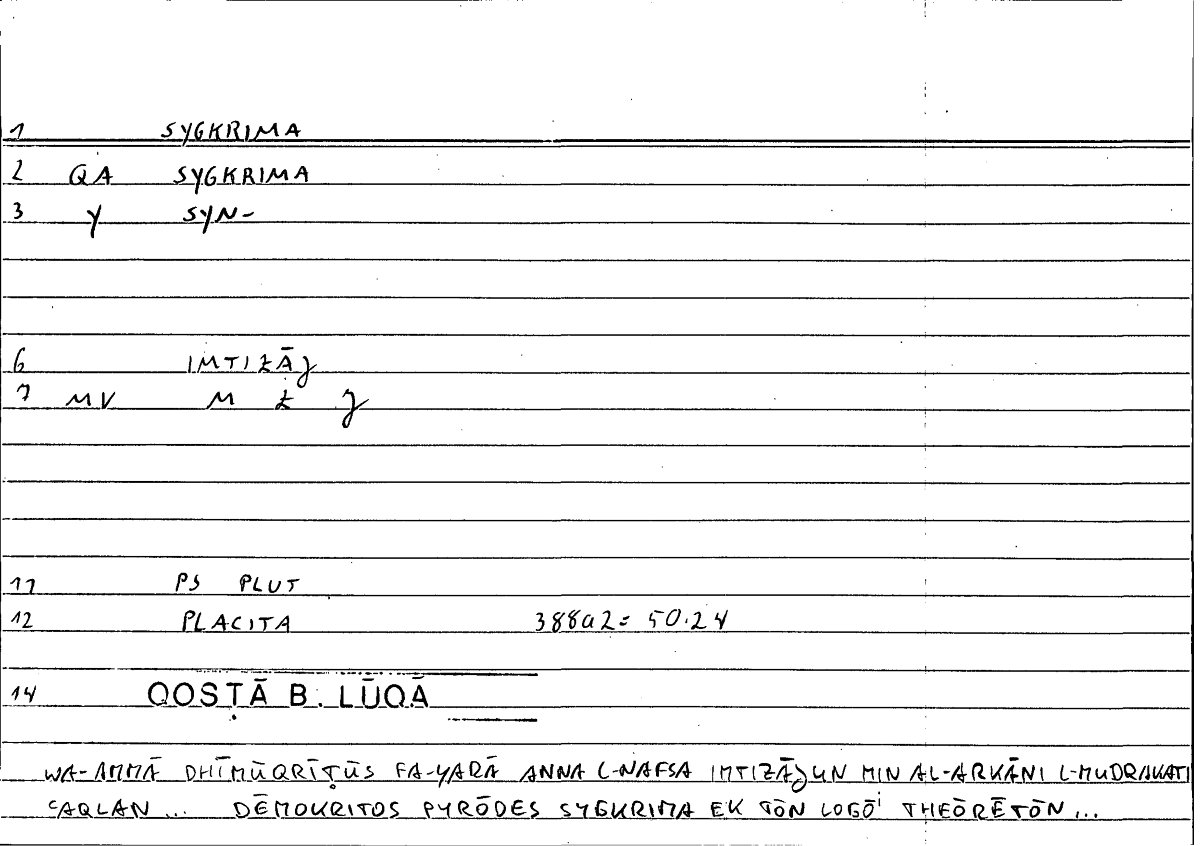 1 SYGKRIMA
2 QA SYGKRIMA
3 Y SYN-
6 IMTIZĀJ
7 MV M Z J
11 PS PLUT
12 PLACITA 388a2 = 50.24
14 QOSṬĀ B. LŪQĀ
WA-AMMĀ DHĪMŪQRĪṬŪS FA-YARĀ ANNA L-NAFSA IMTIZĀJUN MIN AL-ARKĀNI L-MUDRAKATI
ʿAQLAN ... DĒMOKRITOS PYRŌDES SYGKRIMA EK TŌN LOGŌⁱ THEŌRĒTŌN ...